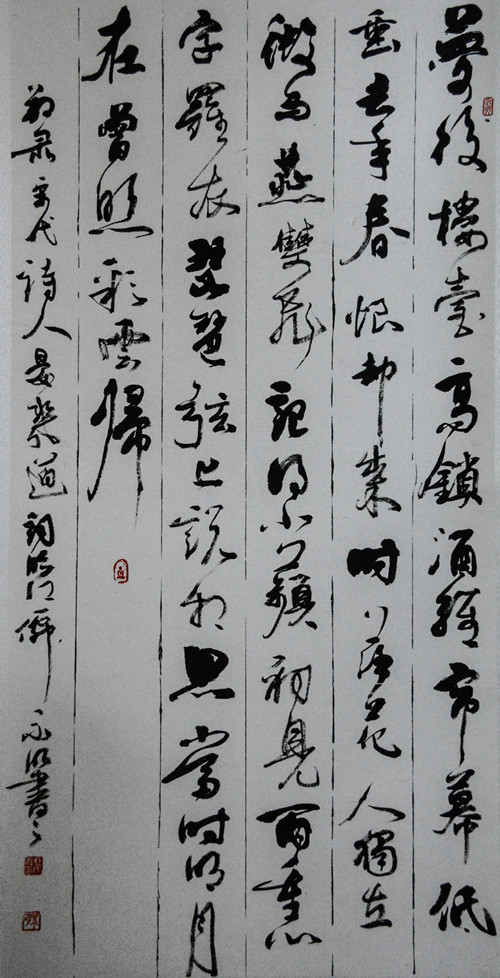 夢後樓臺高鎖酒醒帘幕低
垂去年春恨却來時落花人獨立
微雨燕雙飛記得小蘋初見兩重心
字羅衣琵琶弦上說相思當時明月
在曾照彩雲歸
录宋代詩人晏幾道詞臨江僊 書